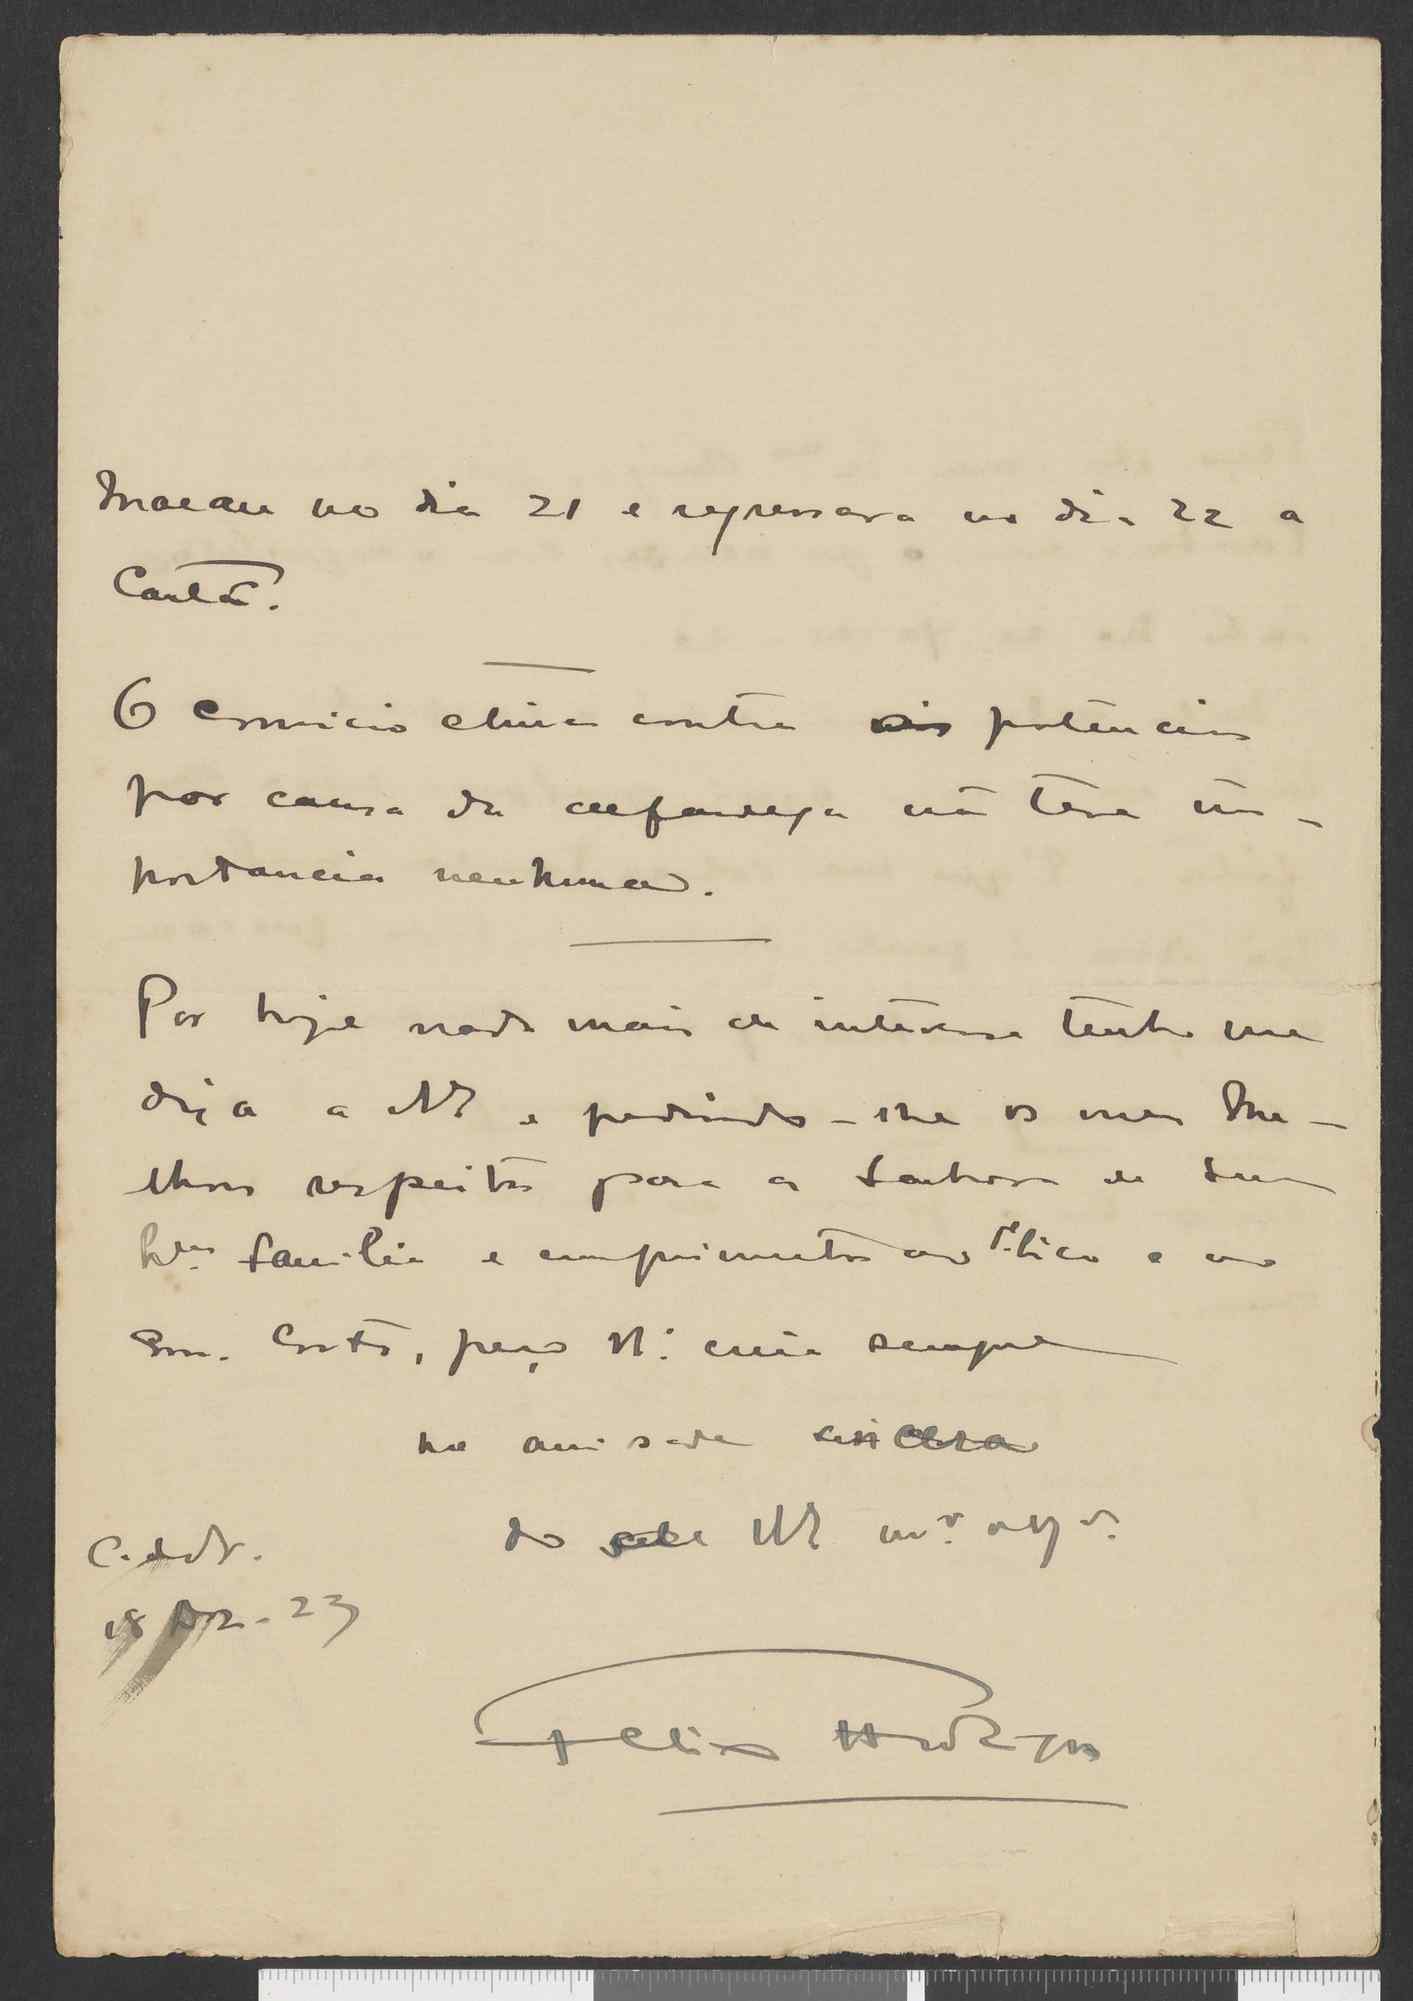 Macau no dia 21 e regressara no dia 22 a
Cantão.
O comicio china contra as potencias
por causa da alfandega não teve im-
portancia nenhuma.
Por hoje nada mais de interesse tenho que
diga a V. Exª e pedindo-lhe os meus me-
lhores respeitos para a Senhora de Sua
Família e cumprimentos ao e ao
Snr. Costa, peço Vª creia sempre
na amisade sincera
do de V. Exª mtº obgº
18 Dez. 23
Felix